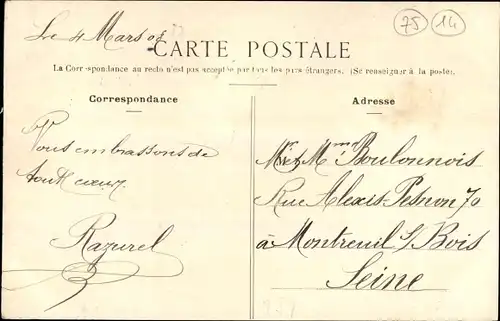 Le 4 Mars 08
75
14
CARTE POSTALE
La Correspondance au recto n'est pas acceptée par tous les pays étrangers. (Se renseigner à la poste).
Correspondance
Adresse
Vous embrassons de
tout cœur.
Razurel
Mr et Mme Boulonnois
Rue Alexis Pesnon 70
à Montreuil s/ Bois
Seine